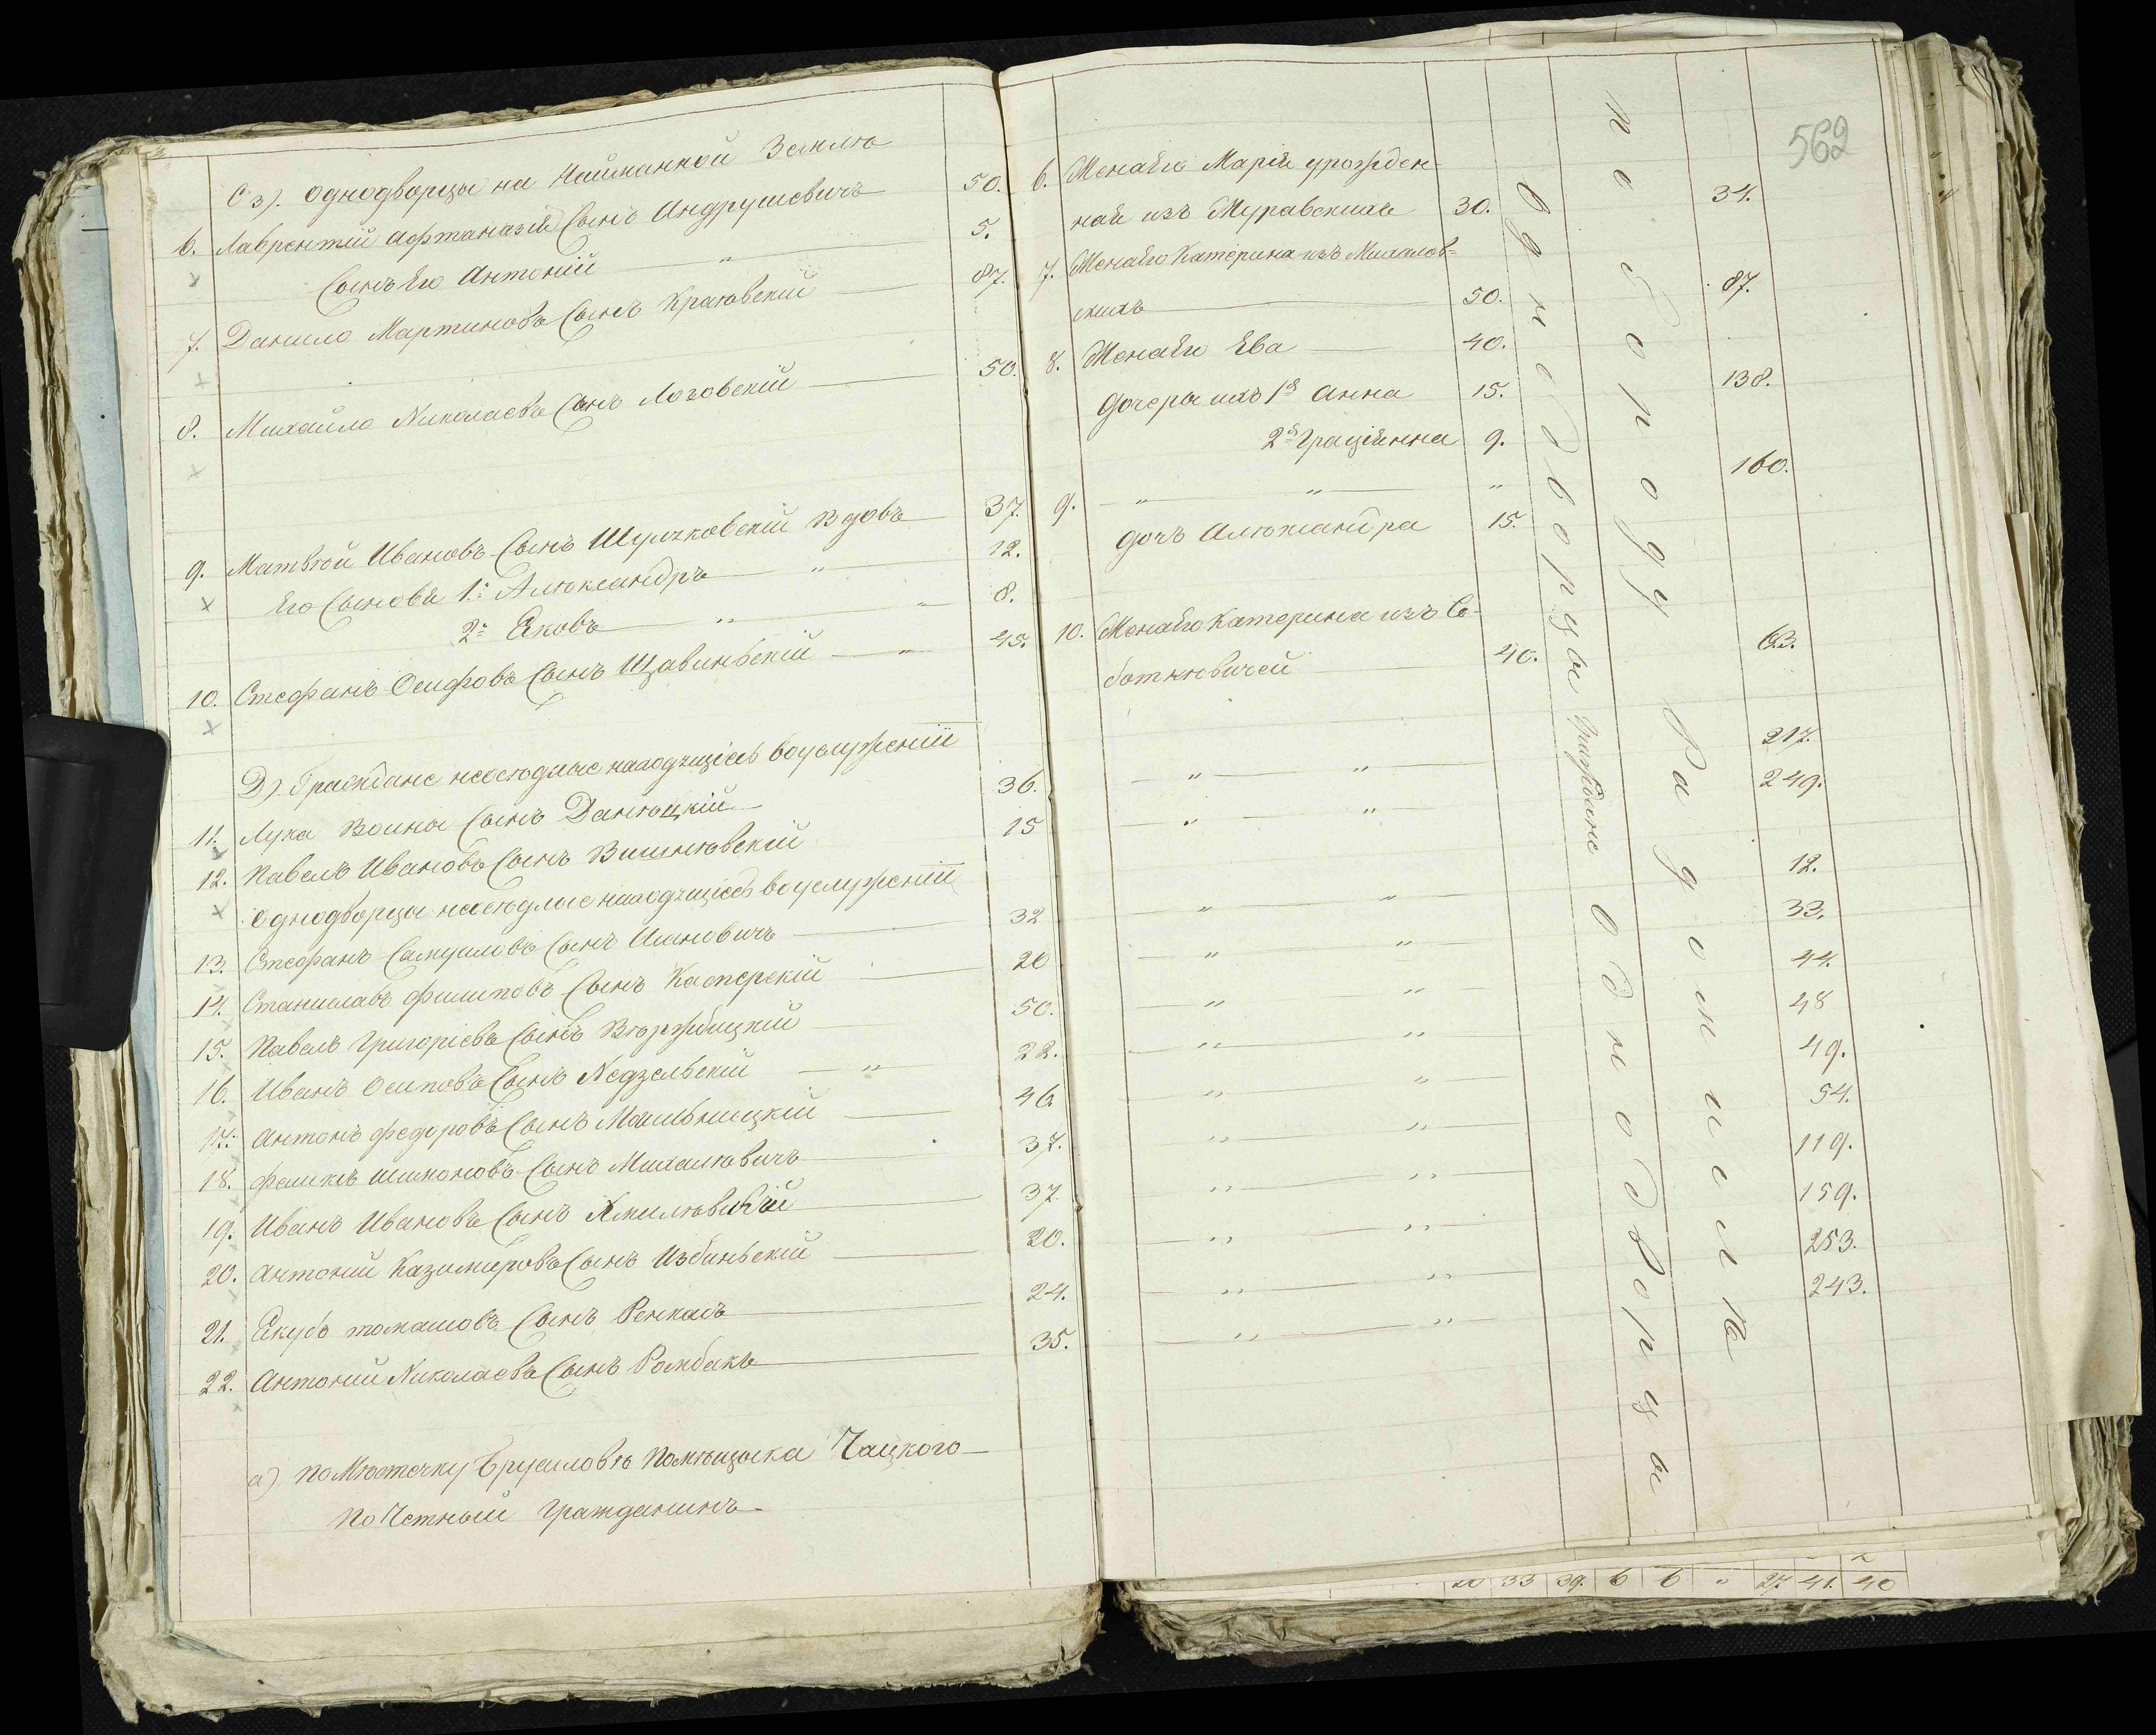 С з). Однодворцы на Найманной Землѣ
6. Лаврентій Афтаназій Сынъ Андрушевичъ 50.
Сынъ Его Антоній " 5.
7. Данило Мартиновъ Сынъ Краѣвскій 87.
8. Михайло Николаевъ Сынъ Лозовскій 50.
9. Матвѣй Ивановъ Сынъ Шулчковскій Вдовъ 37.
Его Сыновья 1: Алѣксандръ " 12.
2: Яковъ " " 8.
10. Стефанъ Осифовъ Сынъ Щавинскій " 45.
Д). Граждане неосѣдлые находящіесь воуслуженіи
11. Лука Воины Сынъ Данѣцкій 36.
12. Павелъ Ивановъ Сынъ Вишнѣвскій 15
Однодворцы неосѣдлые находящіесь воуслуженіи
13. Стефанъ Самуиловъ Сынъ Ильновичъ 32
14. Станиславъ Филиповъ Сынъ Касперскій 20
15. Павелъ Григоріевъ Сынъ Вѣржбицкій 50.
16. Иванъ Осиповъ Сынъ Недзельскій " 22.
17. Антонъ Федоровъ Сынъ Мыльницкій 46
18. Феликсъ Шимоновъ Сынъ Михалѣвичъ 37.
19. Иванъ Ивановъ Сынъ Хмилѣвскій 37
20. Антоній Казимѣровъ Сынъ Избинскій 20.
21. Якубъ томашовъ Сынъ Ренкасъ 24.
22. Антоній Николаевъ Сынъ Ромбакъ 35.
а) по Мѣстечку Брусиловѣ помѣщыка Чацкого
по Четный Гражданинъ
562
6. Жена Его Марія урожден-
ная изъ Муравскихъ 30. 34.
7. Жена Его Катерина изъ Михалов-
скихъ 50. 87.
8. Жена Его Ева 40.
дочеры ихъ 1я Анна 15. 138.
2я Граціянна 9.
9. " " " 160.
дочъ Алѣксандра 15.
10. Жена Его Катерина изъ Со-
боткѣвичей 40. 63.
" " 217.
" " 249.
" " 12.
" " 33.
" " 44.
" " 48
" " 49.
" " 54.
" " 119.
" " 159.
" " 253.
" " 243.
Однодворцы
Граждане
Однодворцы
по городу
Радомислѣ
20 33 39. 6 6 " 27 41. 40